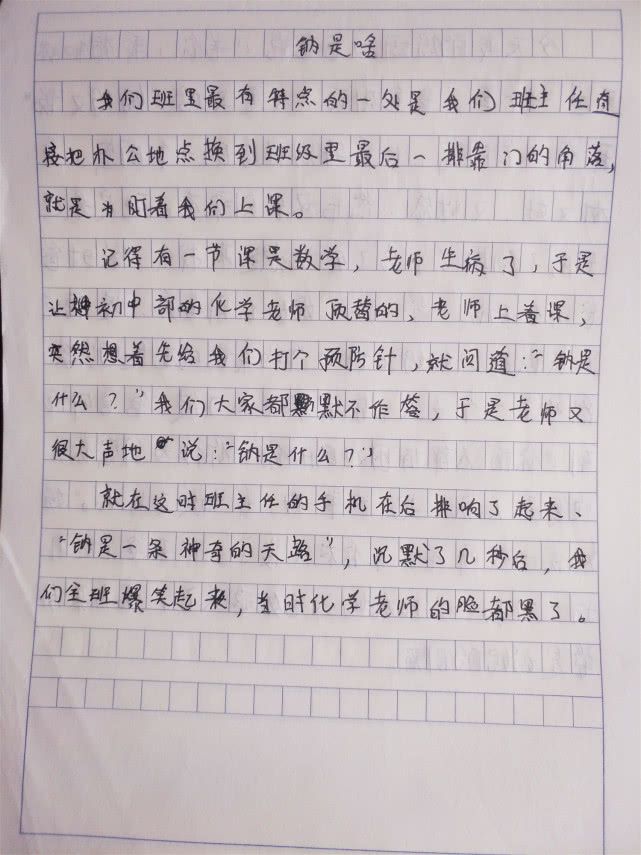 钠是啥
我们班里最有特点的一处是我们班主任直
接把办公地点换到班级里最后一排靠门的角落,
就是为盯着我们上课。
记得有一节课是数学,老师生病了,于是
让初中部的化学老师顶替的,老师上着课,
突然想着先给我们打个预防针,就问道:“钠是
什么?”我们大家都默不作答,于是老师又
很大声地说:“钠是什么?”
就在这时班主任的手机在后排响了起来、
“钠是一条神奇的天路”,沉默了几秒后,我
们全班爆笑起来,当时化学老师的脸都黑了。